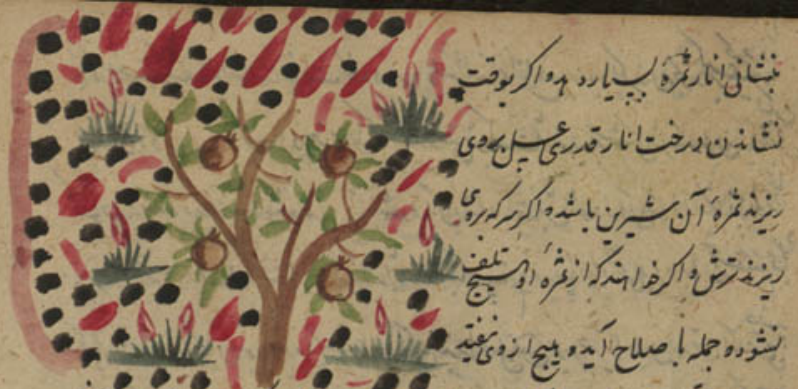 بنشانی انار ثمره بسیار دهد و اکر بوقت
نشاندن درخت انار قدری عسل بروی
ریزند ثمرهٔ آن شیرین باشد و اکر سرکه بروی
ریزند ترش و اکر خواهند که از ثمرهٔ او هیچ تلف
نشود و جمله با صلاح آید و هیچ از وی نیفتد